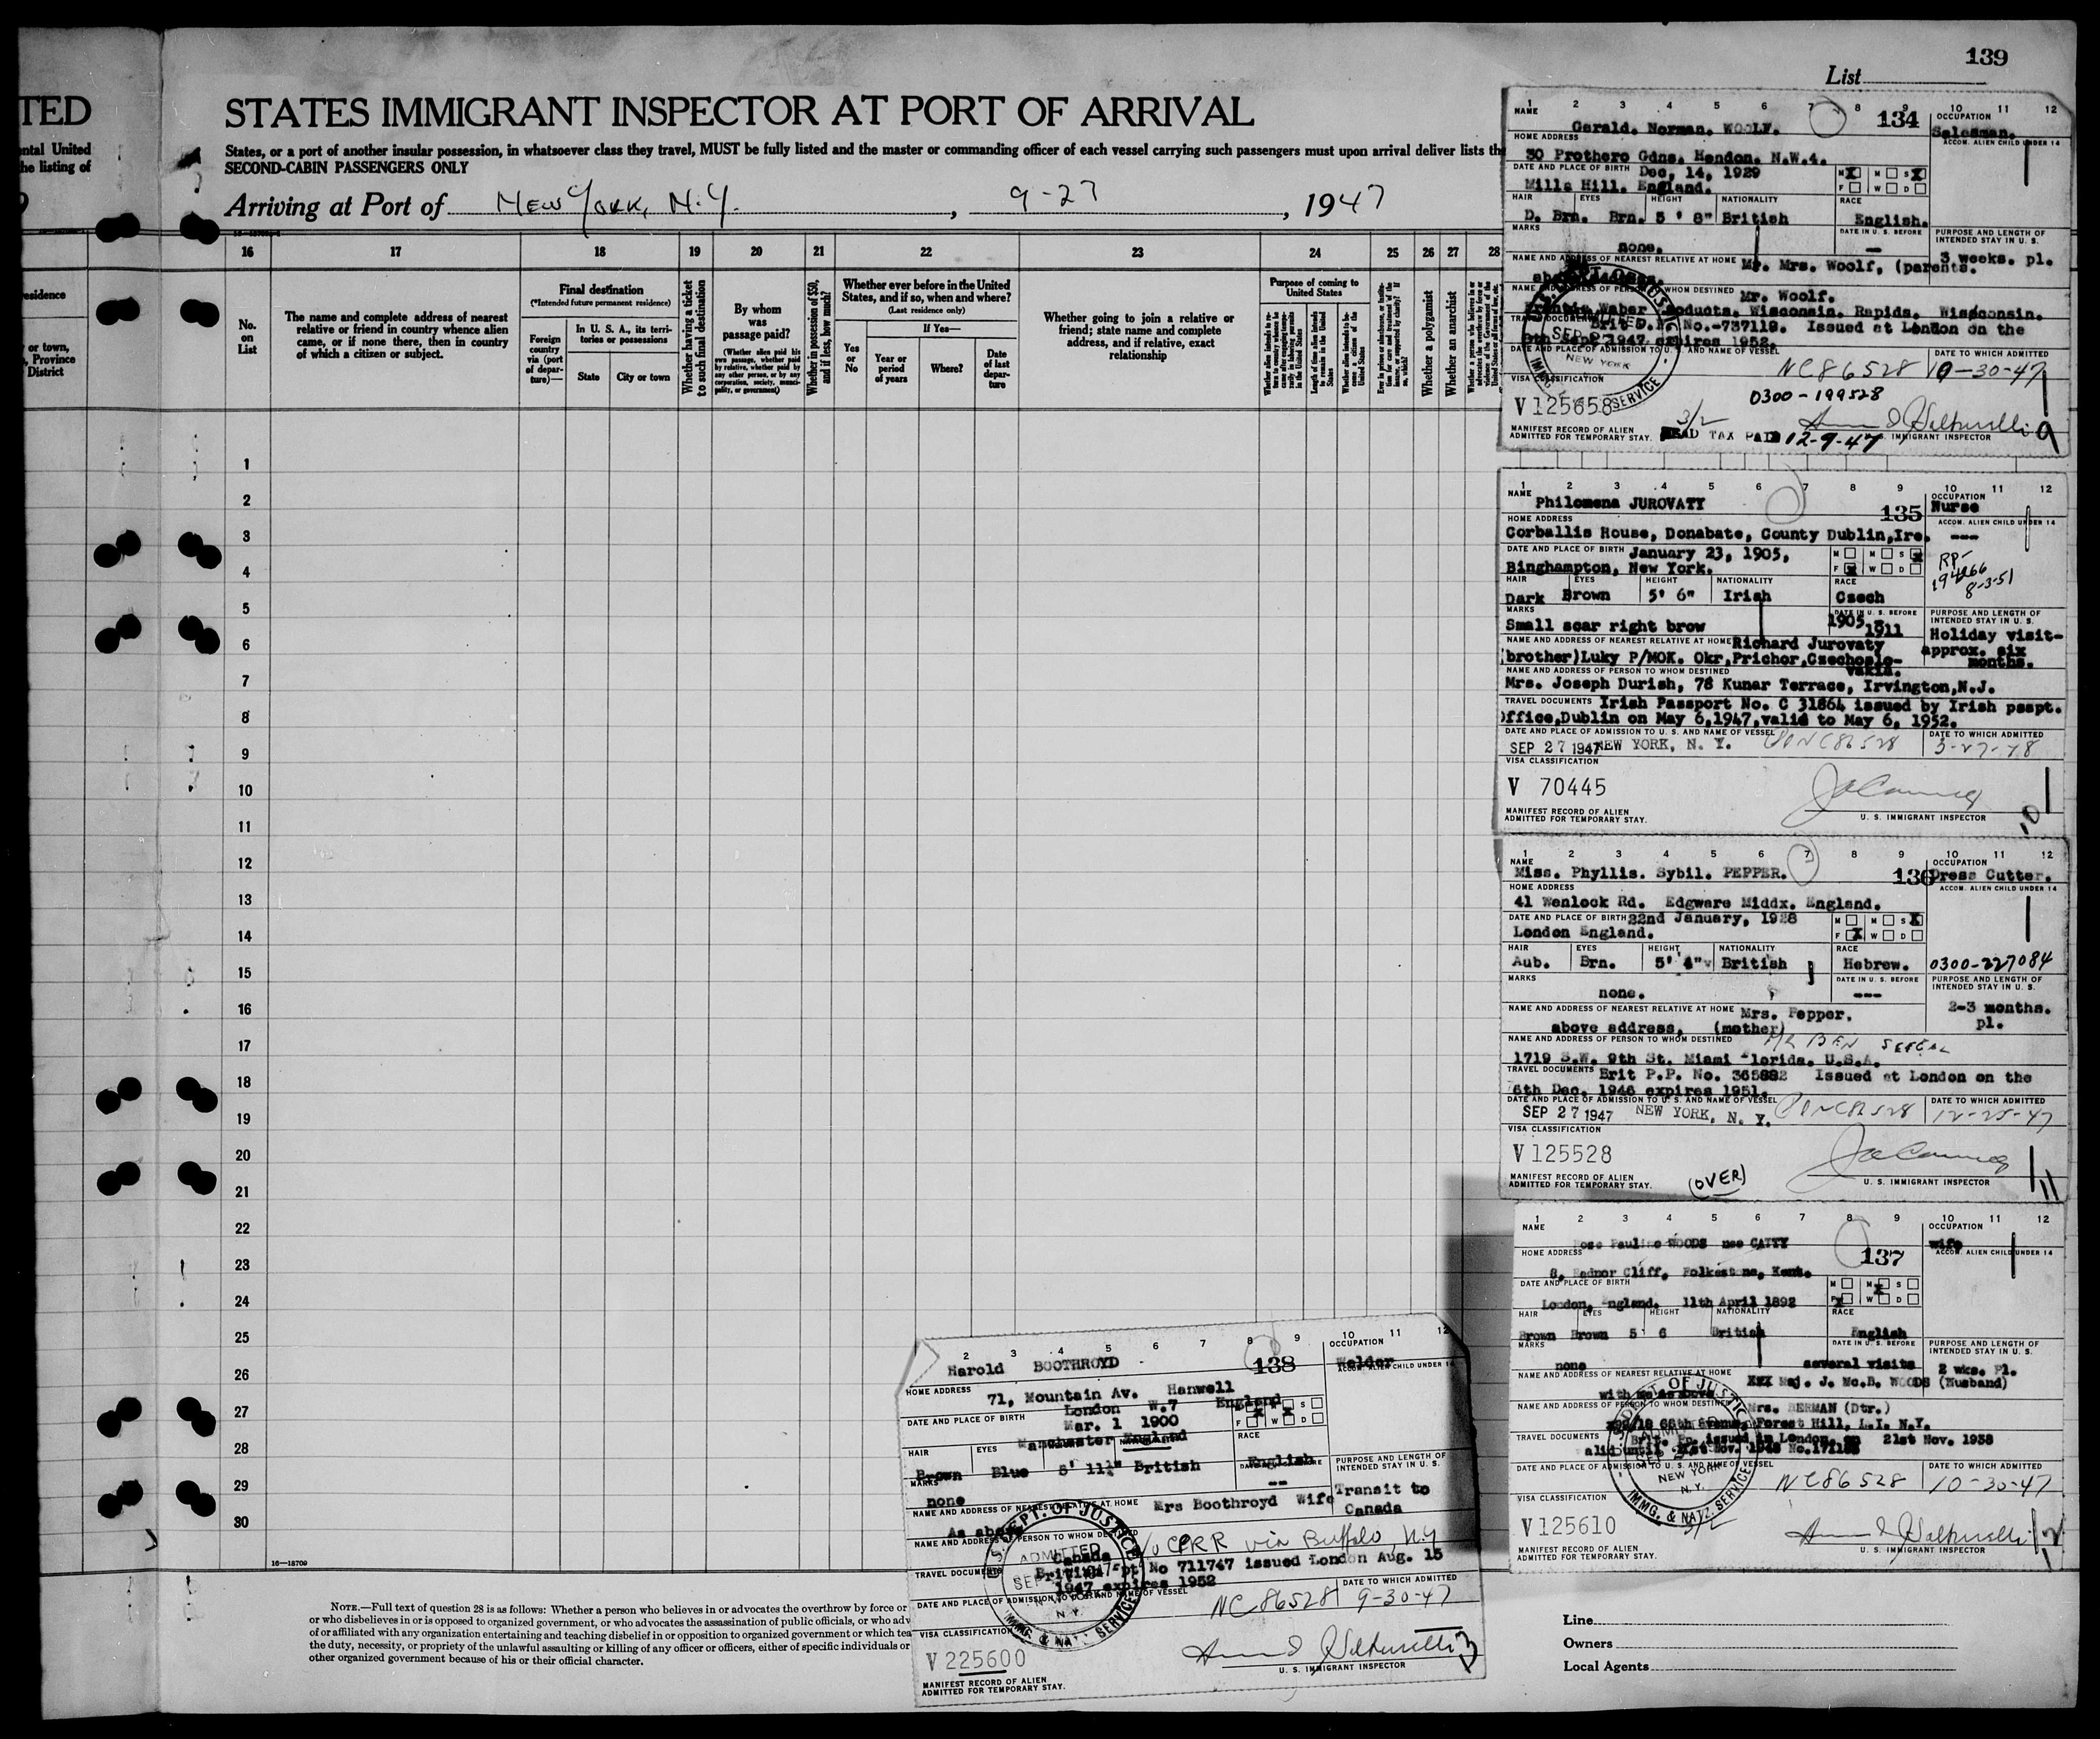 139
List
TED
ntal United
he listing of
STATES IMMIGRANT INSPECTOR AT PORT OF ARRIVAL
States, or a port of another insular possession, in whatsoever class they travel, MUST be fully listed and the master or commanding officer of each vessel carrying such passengers must upon arrival deliver lists th
SECOND-CABIN PASSENGERS ONLY
Arriving at Port of New York, N.Y. , 9-27 , 1947
esidence
or town,
, Province
District
16 17 18 19 20 21 22 23 24 25 26 27 28
No.
on
List
The name and complete address of nearest
relative or friend in country whence alien
came, or if none there, then in country
of which a citizen or subject.
Final destination
(*Intended future permanent residence)
Foreign
country
via (port
of depar-
ture)—
In U. S. A., its terri-
tories or possessions
State
City or town
Whether having a ticket
to such final destination
By whom
was
passage paid?
(Whether alien paid his
own passage, whether paid
by relative, whether paid by
any other person, or by any
corporation, society, munici-
pality, or government)
Whether in possession of $50,
and if less, how much?
Whether ever before in the United
States, and if so, when and where?
(Last residence only)
Yes
or
No
If Yes—
Year or
period
of years
Where?
Date
of last
depar-
ture
Whether going to join a relative or
friend; state name and complete
address, and if relative, exact
relationship
Purpose of coming to
United States
Whether a polygamist
Whether an anarchist
1
2
3
4
5
6
7
8
9
10
11
12
13
14
15
16
17
18
19
20
21
22
23
24
25
26
27
28
29
30
16—18709
NOTE.—Full text of question 28 is as follows: Whether a person who believes in or advocates the overthrow by force or
or who disbelieves in or is opposed to organized government, or who advocates the assassination of public officials, or who adv
of or affiliated with any organization entertaining and teaching disbelief in or opposition to organized government or which tea
the duty, necessity, or propriety of the unlawful assaulting or killing of any officer or officers, either of specific individuals or
other organized government because of his or their official character.
1 2 3 4 5 6 7 8 9 10 11 12
NAME Gerald. Norman. WOOLF. 134
OCCUPATION Salesman.
ACCOM. ALIEN CHILD UNDER 14
HOME ADDRESS
30 Prothero Gdns. Hendon. N.W.4.
DATE AND PLACE OF BIRTH Dec, 14, 1929
Mills Hill. England.
M X M S X
F W D
HAIR EYES HEIGHT NATIONALITY RACE
D. Brn. Brn. 5 ' 8" British English.
MARKS none.
DATE IN U. S. BEFORE —
PURPOSE AND LENGTH OF
INTENDED STAY IN U. S.
3 weeks. pl.
NAME AND ADDRESS OF NEAREST RELATIVE AT HOME Mr. Mrs. Woolf, (parents.
NAME AND ADDRESS OF PERSON TO WHOM DESTINED Mr. Woolf.
Products. Wisconsin. Rapids. Wisconsin.
TRAVEL DOCUMENTS Brit P.P. No.-737118. Issued at London on the
Sept 1947 expires 1952.
DATE AND PLACE OF ADMISSION TO U. S. AND NAME OF VESSEL
NC86528
DATE TO WHICH ADMITTED
10-30-47
VISA CLASSIFICATION
V 125658
0300-199528
3/2
MANIFEST RECORD OF ALIEN
ADMITTED FOR TEMPORARY STAY.
HEAD TAX PAID 12-9-47
U. S. IMMIGRANT INSPECTOR
9
1 2 3 4 5 6 7 8 9 10 11 12
NAME Philomena JUROVATY
135
OCCUPATION
Nurse
ACCOM. ALIEN CHILD UNDER 14
---
HOME ADDRESS
Corballis House, Donabate, County Dublin,Ire.
DATE AND PLACE OF BIRTH January 23, 1905,
Binghampton, New York.
M M S X
F X W D
RP-
194266
8-3-51
HAIR EYES HEIGHT NATIONALITY RACE
Dark Brown 5' 6" Irish Czech
MARKS
Small scar right brow
DATE IN U. S. BEFORE
1905-
1911
PURPOSE AND LENGTH OF
INTENDED STAY IN U. S.
Holiday visit-
approx. six
months.
NAME AND ADDRESS OF NEAREST RELATIVE AT HOME Richard Jurovaty
(brother)Luky P/MOK. Okr,Prichor,Czechoslo-
vakia.
NAME AND ADDRESS OF PERSON TO WHOM DESTINED
Mrs. Joseph Durish, 78 Kunar Terrace, Irvington,N.J.
TRAVEL DOCUMENTS Irish Passport No. C 31864 issued by Irish passpt.
Office,Dublin on May 6,1947,valid to May 6, 1952.
DATE AND PLACE OF ADMISSION TO U. S. AND NAME OF VESSEL
SEP 27 1947 NEW YORK, N. Y. NC86528
DATE TO WHICH ADMITTED
3-27-48
VISA CLASSIFICATION
V 70445
MANIFEST RECORD OF ALIEN
ADMITTED FOR TEMPORARY STAY.
U. S. IMMIGRANT INSPECTOR
10
1 2 3 4 5 6 7 8 9 10 11 12
NAME
Miss. Phyllis. Sybil. PEPPER.
136
OCCUPATION
Dress Cutter.
ACCOM. ALIEN CHILD UNDER 14
HOME ADDRESS
41 Wenlock Rd. Edgware Middx. England.
DATE AND PLACE OF BIRTH 22nd January, 1928
London England.
M M S X
F X W D
HAIR EYES HEIGHT NATIONALITY RACE
Aub. Brn. 5' 4" British Hebrew.
0300-227084
MARKS
none.
DATE IN U. S. BEFORE
---
PURPOSE AND LENGTH OF
INTENDED STAY IN U. S.
2-3 months.
pl.
NAME AND ADDRESS OF NEAREST RELATIVE AT HOME Mrs. Pepper.
above address. (mother)
NAME AND ADDRESS OF PERSON TO WHOM DESTINED Mr BEN SEEGAL
1719 S.W. 9th St. Miami Florida. U.S.A.
TRAVEL DOCUMENTS Brit P.P. No. 365882 Issued at London on the
6th Dec. 1946 expires 1951.
DATE AND PLACE OF ADMISSION TO U. S. AND NAME OF VESSEL
SEP 27 1947 NEW YORK, N. Y. NC86528
DATE TO WHICH ADMITTED
12-25-47
VISA CLASSIFICATION
V 125528
MANIFEST RECORD OF ALIEN
ADMITTED FOR TEMPORARY STAY.
(OVER)
U. S. IMMIGRANT INSPECTOR
11
1 2 3 4 5 6 7 8 9 10 11 12
NAME
Rose Pauline WOODS nee CATTY
137
OCCUPATION
wife
ACCOM. ALIEN CHILD UNDER 14
HOME ADDRESS
8, Radnor Cliff, Folkestone, Kent.
DATE AND PLACE OF BIRTH
London, England. 11th April 1892
M M X S
F X W D
HAIR EYES HEIGHT NATIONALITY RACE
Brown Brown 5' 6 British English
MARKS
none
DATE IN U. S. BEFORE
several visits
PURPOSE AND LENGTH OF
INTENDED STAY IN U. S.
2 wks. Pl.
NAME AND ADDRESS OF NEAREST RELATIVE AT HOME
XXX Maj. J. Mc.B. WOODS (Husband)
with me as above
NAME AND ADDRESS OF PERSON TO WHOM DESTINED Mrs. BERMAN (Dtr.)
66th Avenue, Forest Hill, L.I. N.Y.
TRAVEL DOCUMENTS Brit. Pp. issued in London, on 21st Nov. 1938
valid until 21st Nov. 1948
DATE AND PLACE OF ADMISSION TO U. S. AND NAME OF VESSEL
NC86528
DATE TO WHICH ADMITTED
10-30-47
VISA CLASSIFICATION
V 125610
3/2
MANIFEST RECORD OF ALIEN
ADMITTED FOR TEMPORARY STAY.
U. S. IMMIGRANT INSPECTOR
12
2 3 4 5 6 7 8 9 10 11 12
Harold BOOTHROYD
138
OCCUPATION
Welder
ACCOM. ALIEN CHILD UNDER 14
HOME ADDRESS 71, Mountain Av. Hanwell
London W.7 England
DATE AND PLACE OF BIRTH Mar. 1 1900
Manchester England
HAIR EYES RACE
Brown Blue 5' 11¼" British English
MARKS
none
--
PURPOSE AND LENGTH OF
INTENDED STAY IN U. S.
Transit to
Canada
NAME AND ADDRESS OF NEAREST RELATIVE AT HOME Mrs Boothroyd Wife
As above
NAME AND ADDRESS OF PERSON TO WHOM DESTINED
Canada
via Buffalo, N.Y
TRAVEL DOCUMENTS British Ppt No 711747 issued London Aug. 15
1947 expires 1952
DATE AND PLACE OF ADMISSION TO U. S. AND NAME OF VESSEL
NC86528
DATE TO WHICH ADMITTED
9-30-47
U. S. DEPT. OF JUSTICE
ADMITTED
SEP
N. Y.
IMMG. & NATZ. SERVICE
VISA CLASSIFICATION
V 225600
MANIFEST RECORD OF ALIEN
ADMITTED FOR TEMPORARY STAY.
U. S. IMMIGRANT INSPECTOR
13
Line
Owners
Local Agents